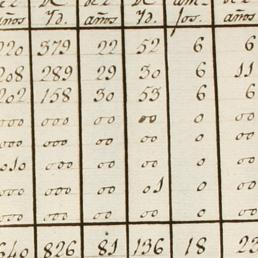 años Yd. años Yd. sos. años
220 379 22 52 6 6
208 289 29 30 6 11
202 158 30 53 6 6
000 000 00 00 0 0
000 000 00 00 0 0
010 000 00 00 0 0
000 000 00 01 0 0
000 000 00 00 0 0
640 826 81 136 18 23